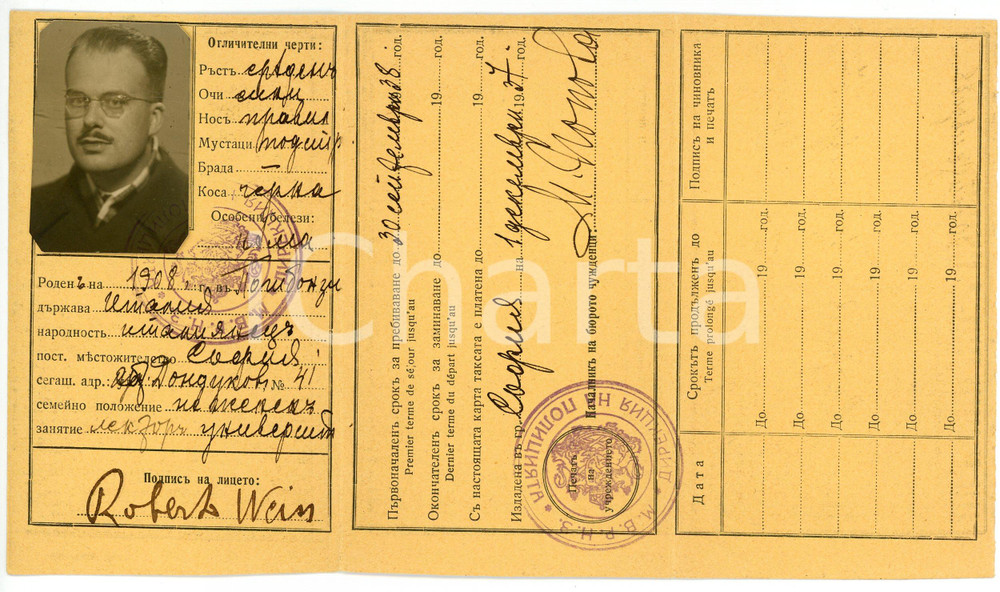 Отличителни черти:
Ръстъ срѣденъ
Очи сини
Носъ правил
Мустаци подстр.
Брада —
Коса черна
Особени белези:
няма
Роденъ на 1908 г. въ
държава Италия
народность италиянецъ
пост. мѣстожителство София
сегаш. адр.: Дондуковъ № 41
семейно положение неженен
занятие лекторъ университ
Подпись на лицето:
Roberto Weiss
Първоначаленъ срокъ за пребиваване до 30 септемврий 38 год.
Premier terme de séjour jusqu'au
Окончателенъ срокъ за заминаване до 19 год.
Dernier terme du départ jusqu'au
Съ настоящата карта таксата е платена до 19 год.
Издадена въ гр. София на 1 декемврий 1937 год.
Началникъ на бюрото чужденци:
Печатъ
на
учреждението
ДИРЕКЦИЯ НА ПОЛИЦИЯТА
М. В. Р. Н. З.
Дата
Срокътъ продълженъ до
Terme prolongé jusqu'au
Подпись на чиновника
и печатъ
До 19 год.
До 19 год.
До 19 год.
До 19 год.
До 19 год.
До 19 год.
iCharta